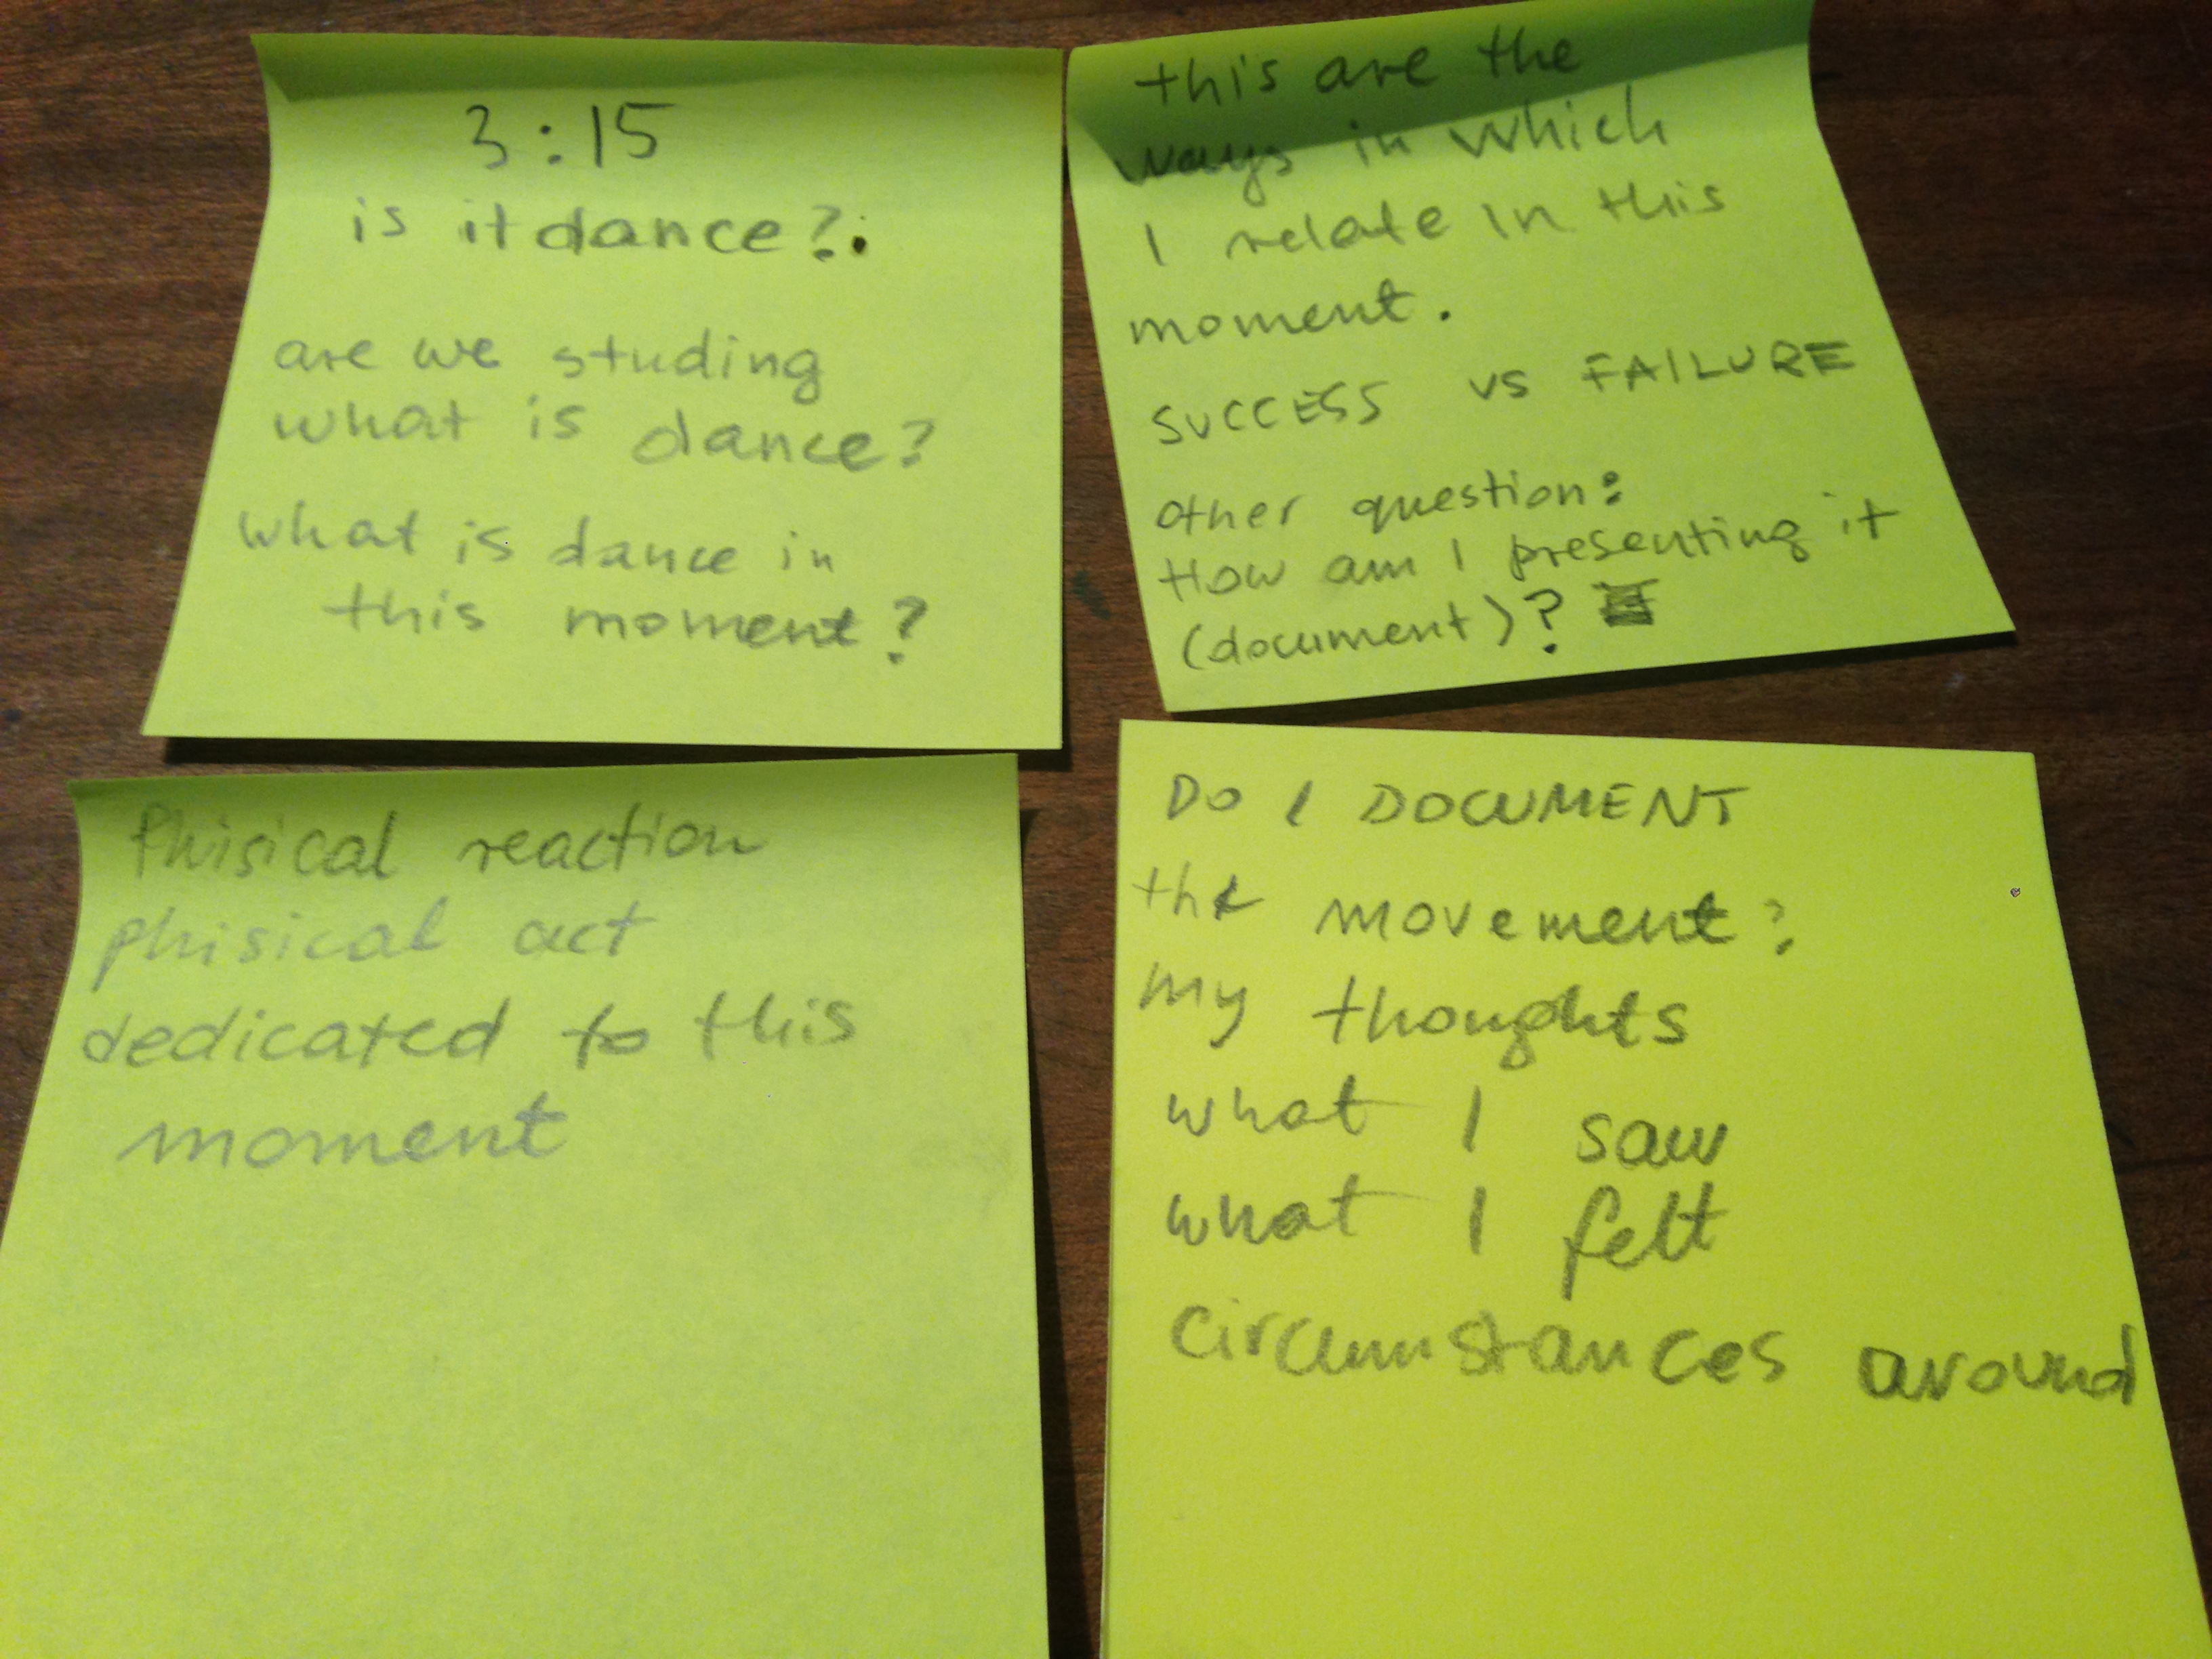 3:15
is it dance?.
are we studing
what is dance?
what is dance in
this moment?
this are the
ways in which
I relate in this
moment.
SUCCESS vs FAILURE
other question:
How am I presenting it
(document)?
Phisical reaction
phisical act
dedicated to this
moment
Do I DOCUMENT
the movement?
my thoughts
what I saw
what I felt
circumstances around